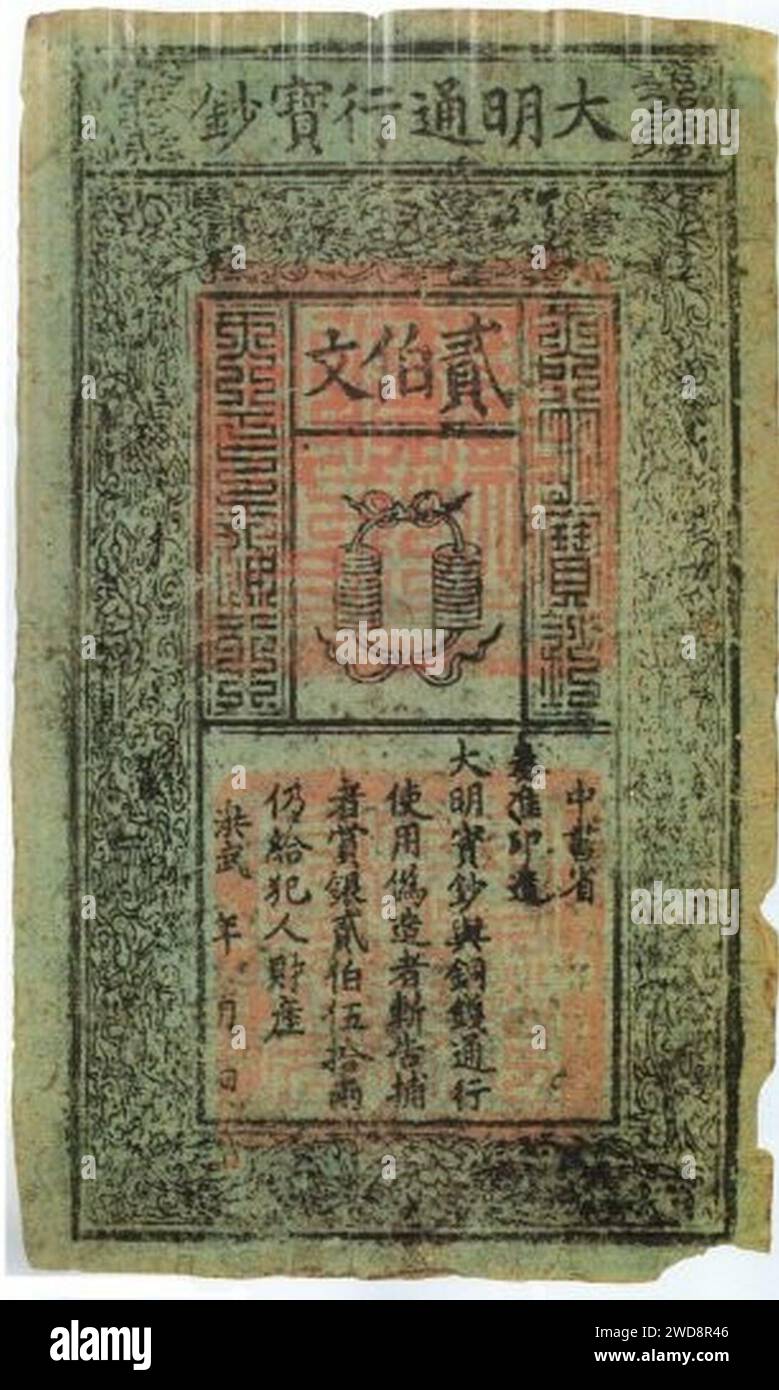 大明通行寶鈔
貳伯文
中書省
奏准印造
大明寶鈔與銅錢通行
使用偽造者斬告捕
者賞銀貳伯伍拾兩
仍給犯人財產
洪武 年 月 日
alamy
alamy
alamy
Image ID: 2WD8R46
www.alamy.com